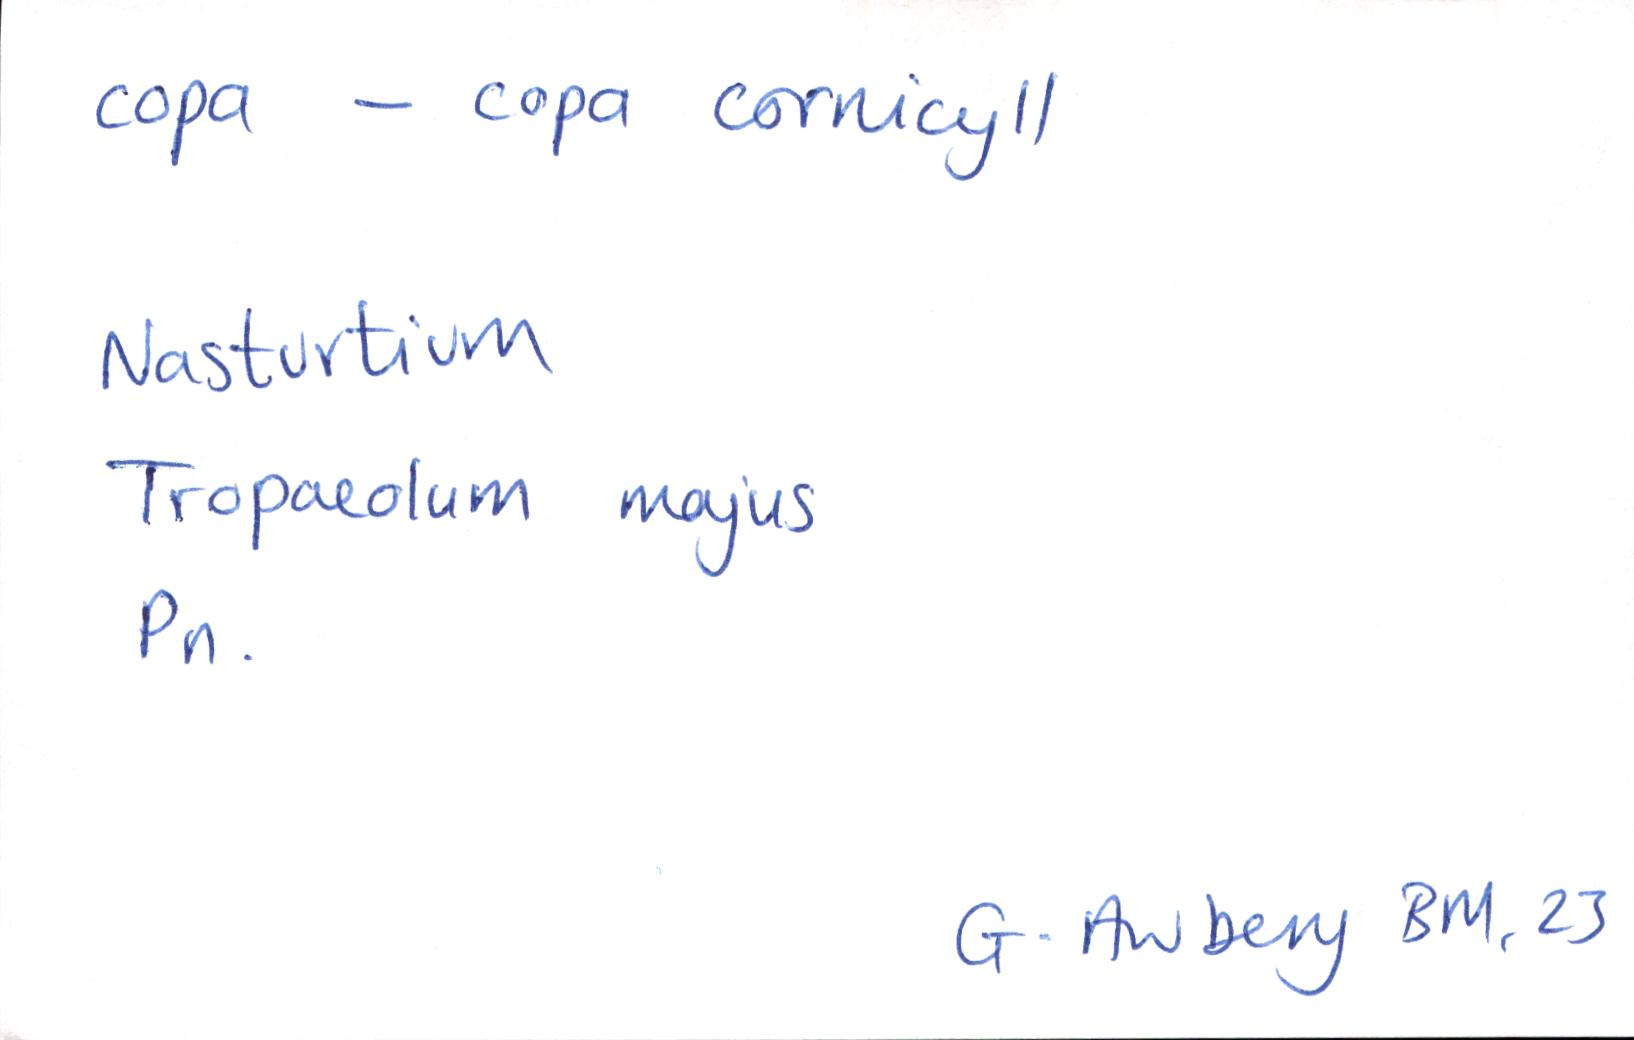 copa – copa cornicyll
Nasturtium
Tropaeolum majus
Pn.
G. Awbery BM, 23